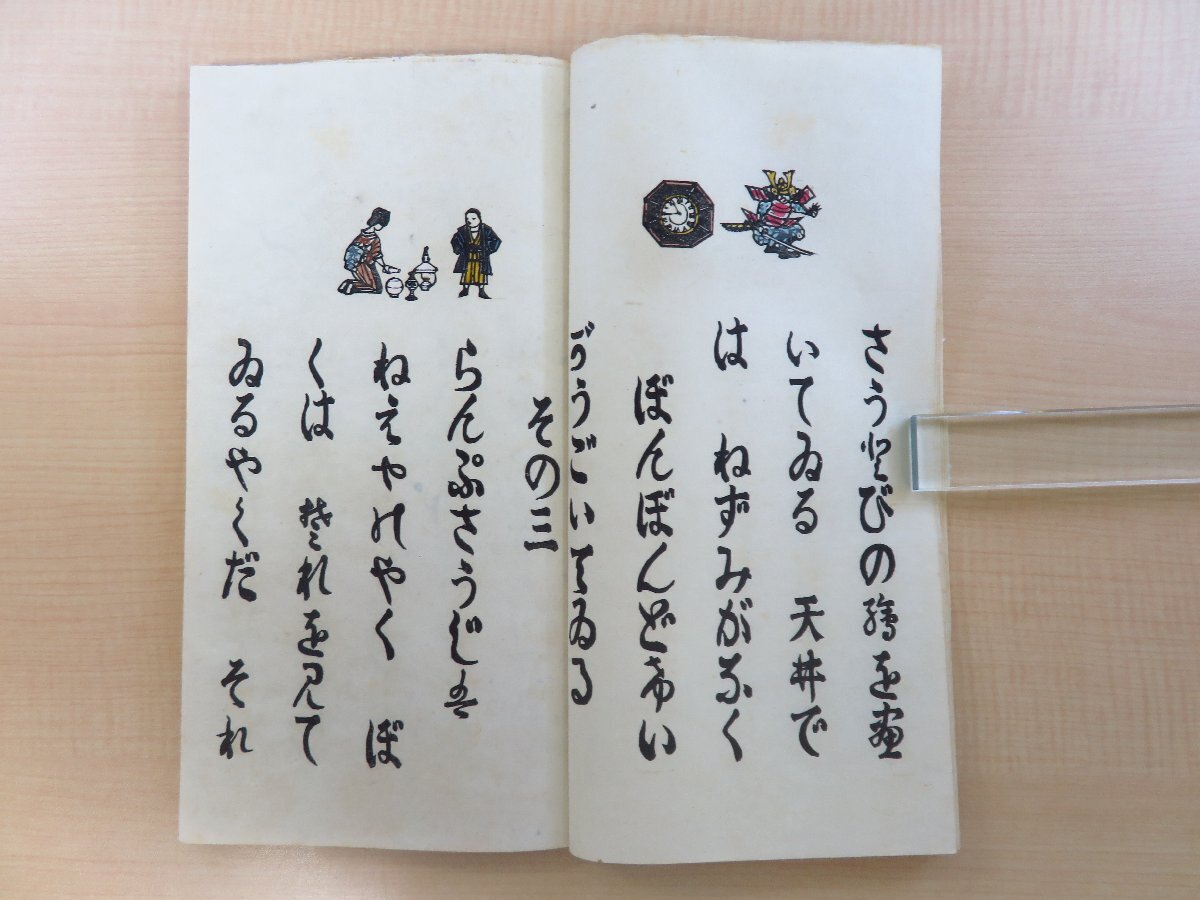 さう びの繪を画
いてゐる 天井で
は ねずみがなく
ぼんぼんどけい
がうごいてゐる
その三
らんぷさうじは
ねえやのやく ぼ
くは それを見て
ゐるやくだ それ